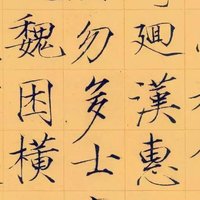 廻漢惠
勿多士
魏困橫